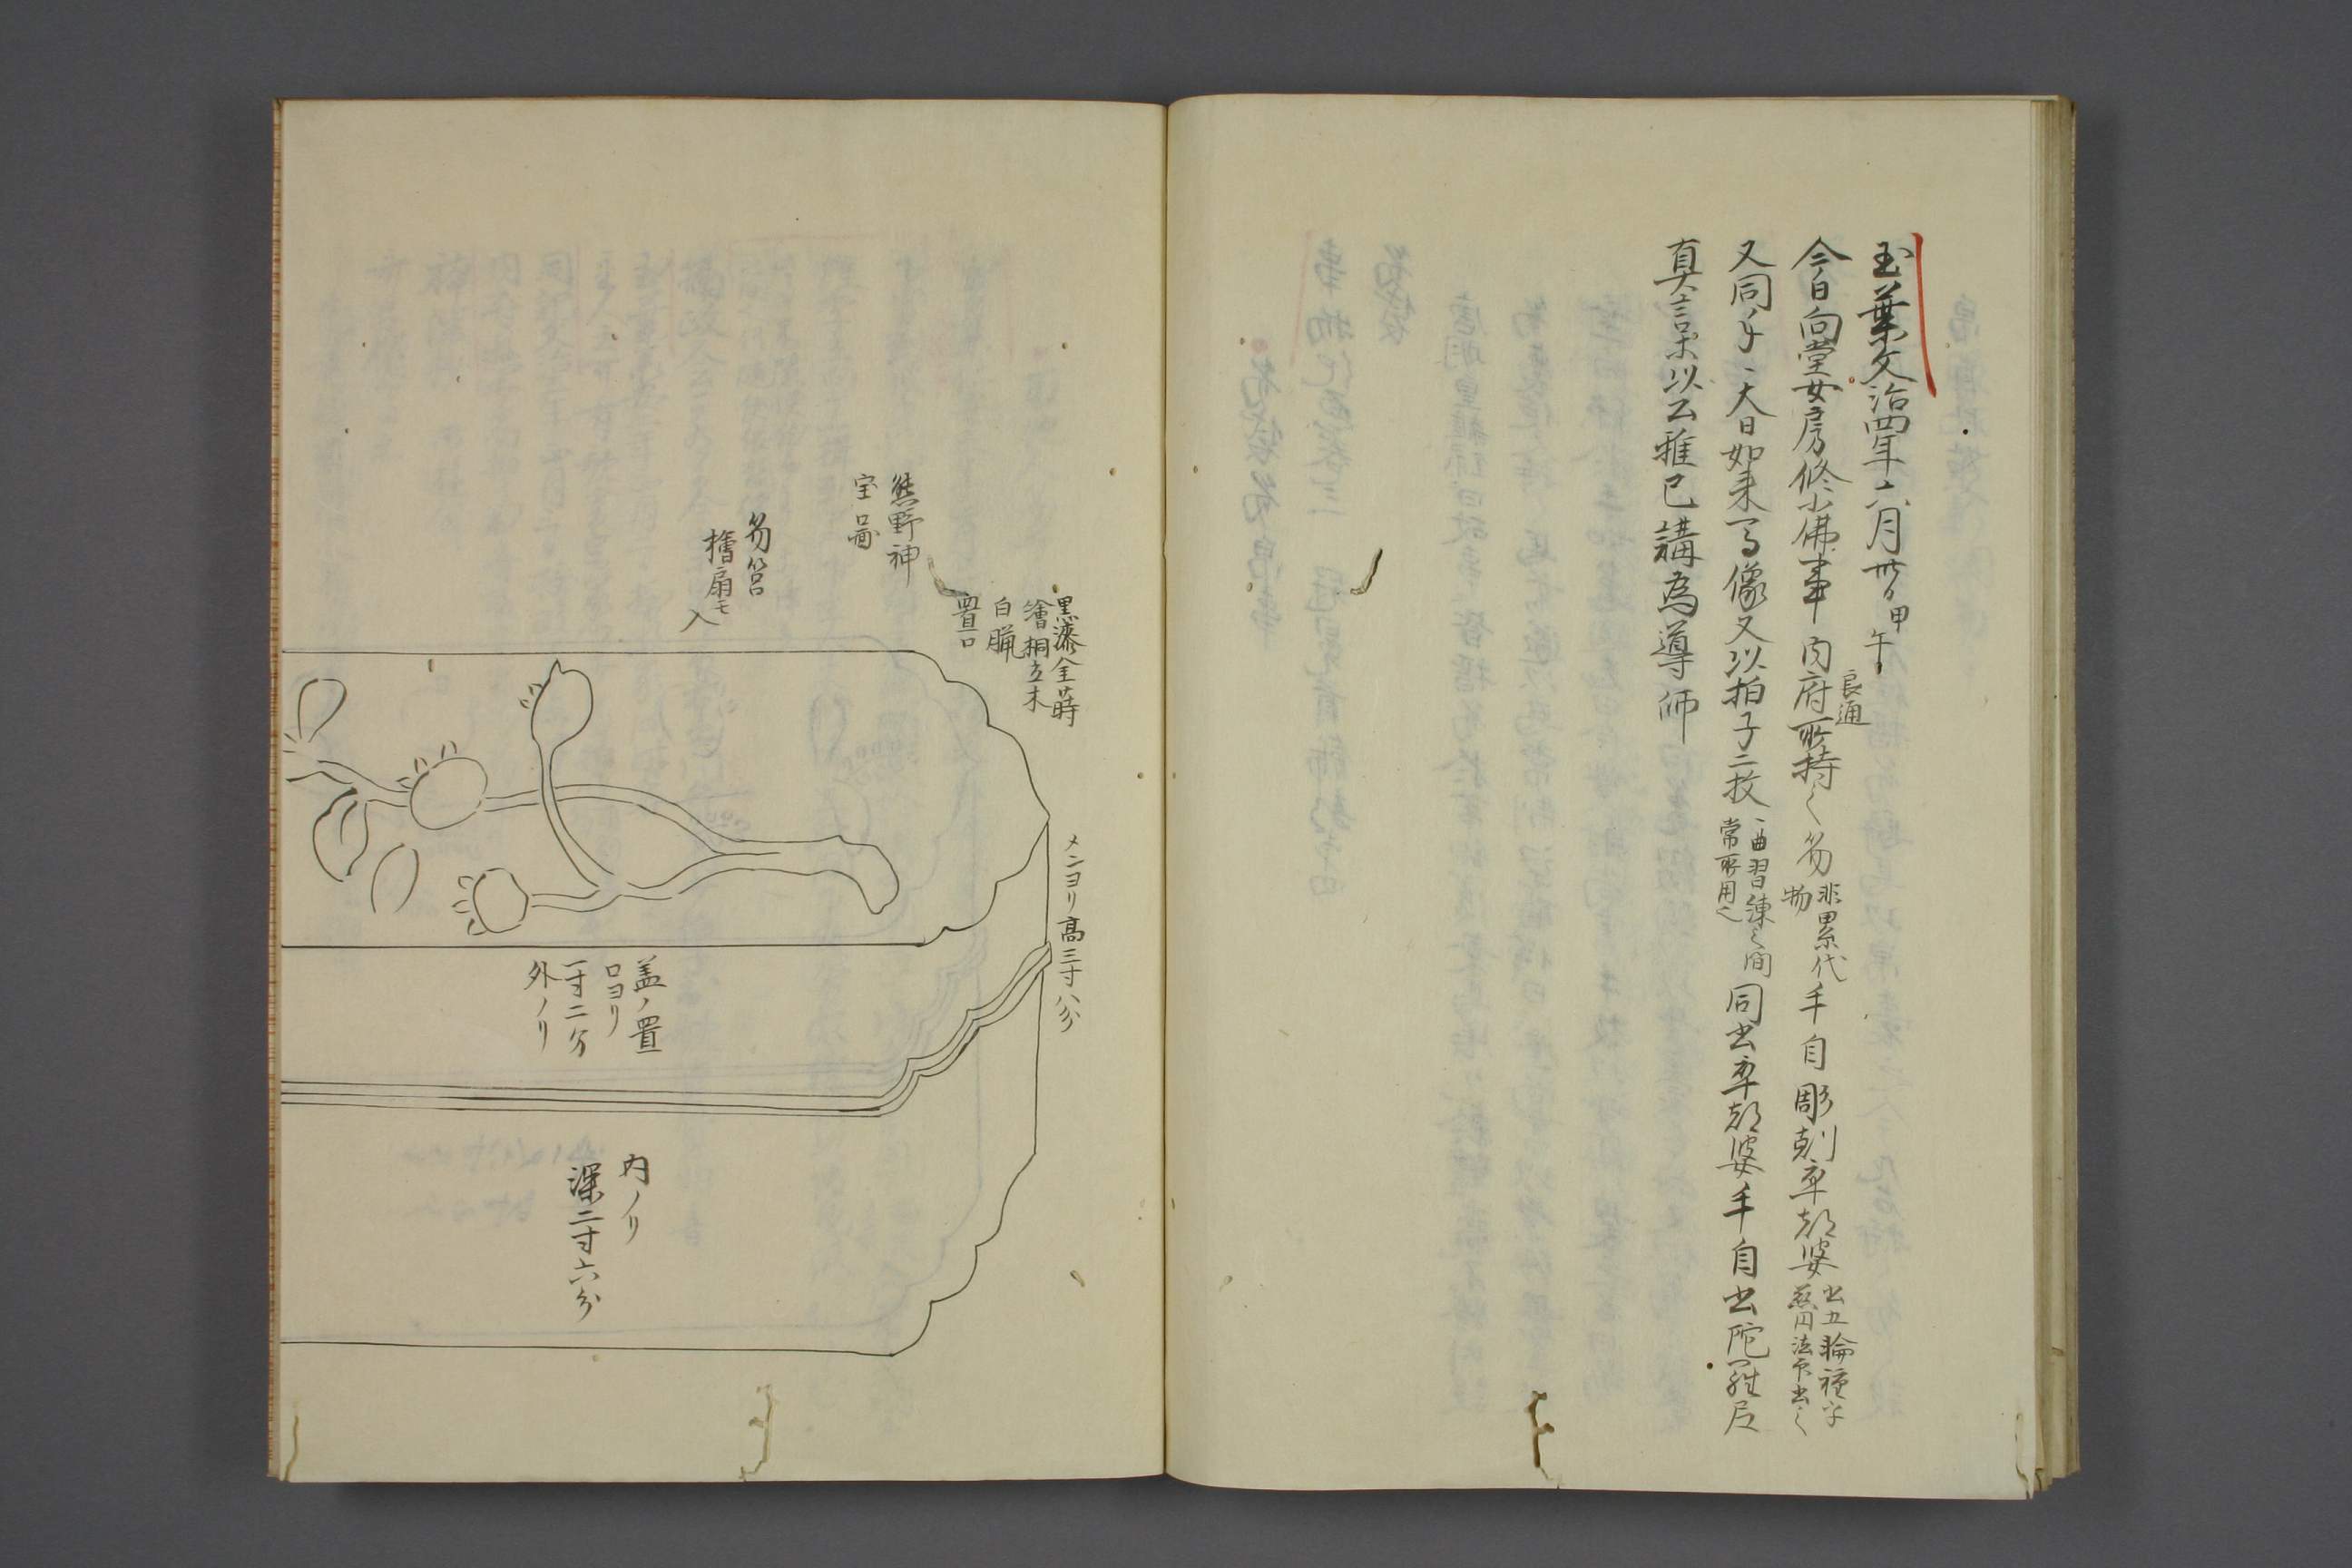 玉葉文治四年六月廿八日甲午
今日向堂女房修小佛事内府良通所持之笏非累代物手自彫剋卒都婆書五輪種字慈円法印書之
又同手、大日如来了像又以拍子二枚、曲習練之間常所用之同書卒都婆手自書陀羅尼
真言等以公雅已講為導師
黒漆金蒔
繪桐立木
白臈
置口
熊野神
宝図
笏筥
檜扇モ
入
メンヨリ高三寸八分
盖ノ置
口ヨリ
一寸二分
外ノリ
内ノリ
深二寸六分